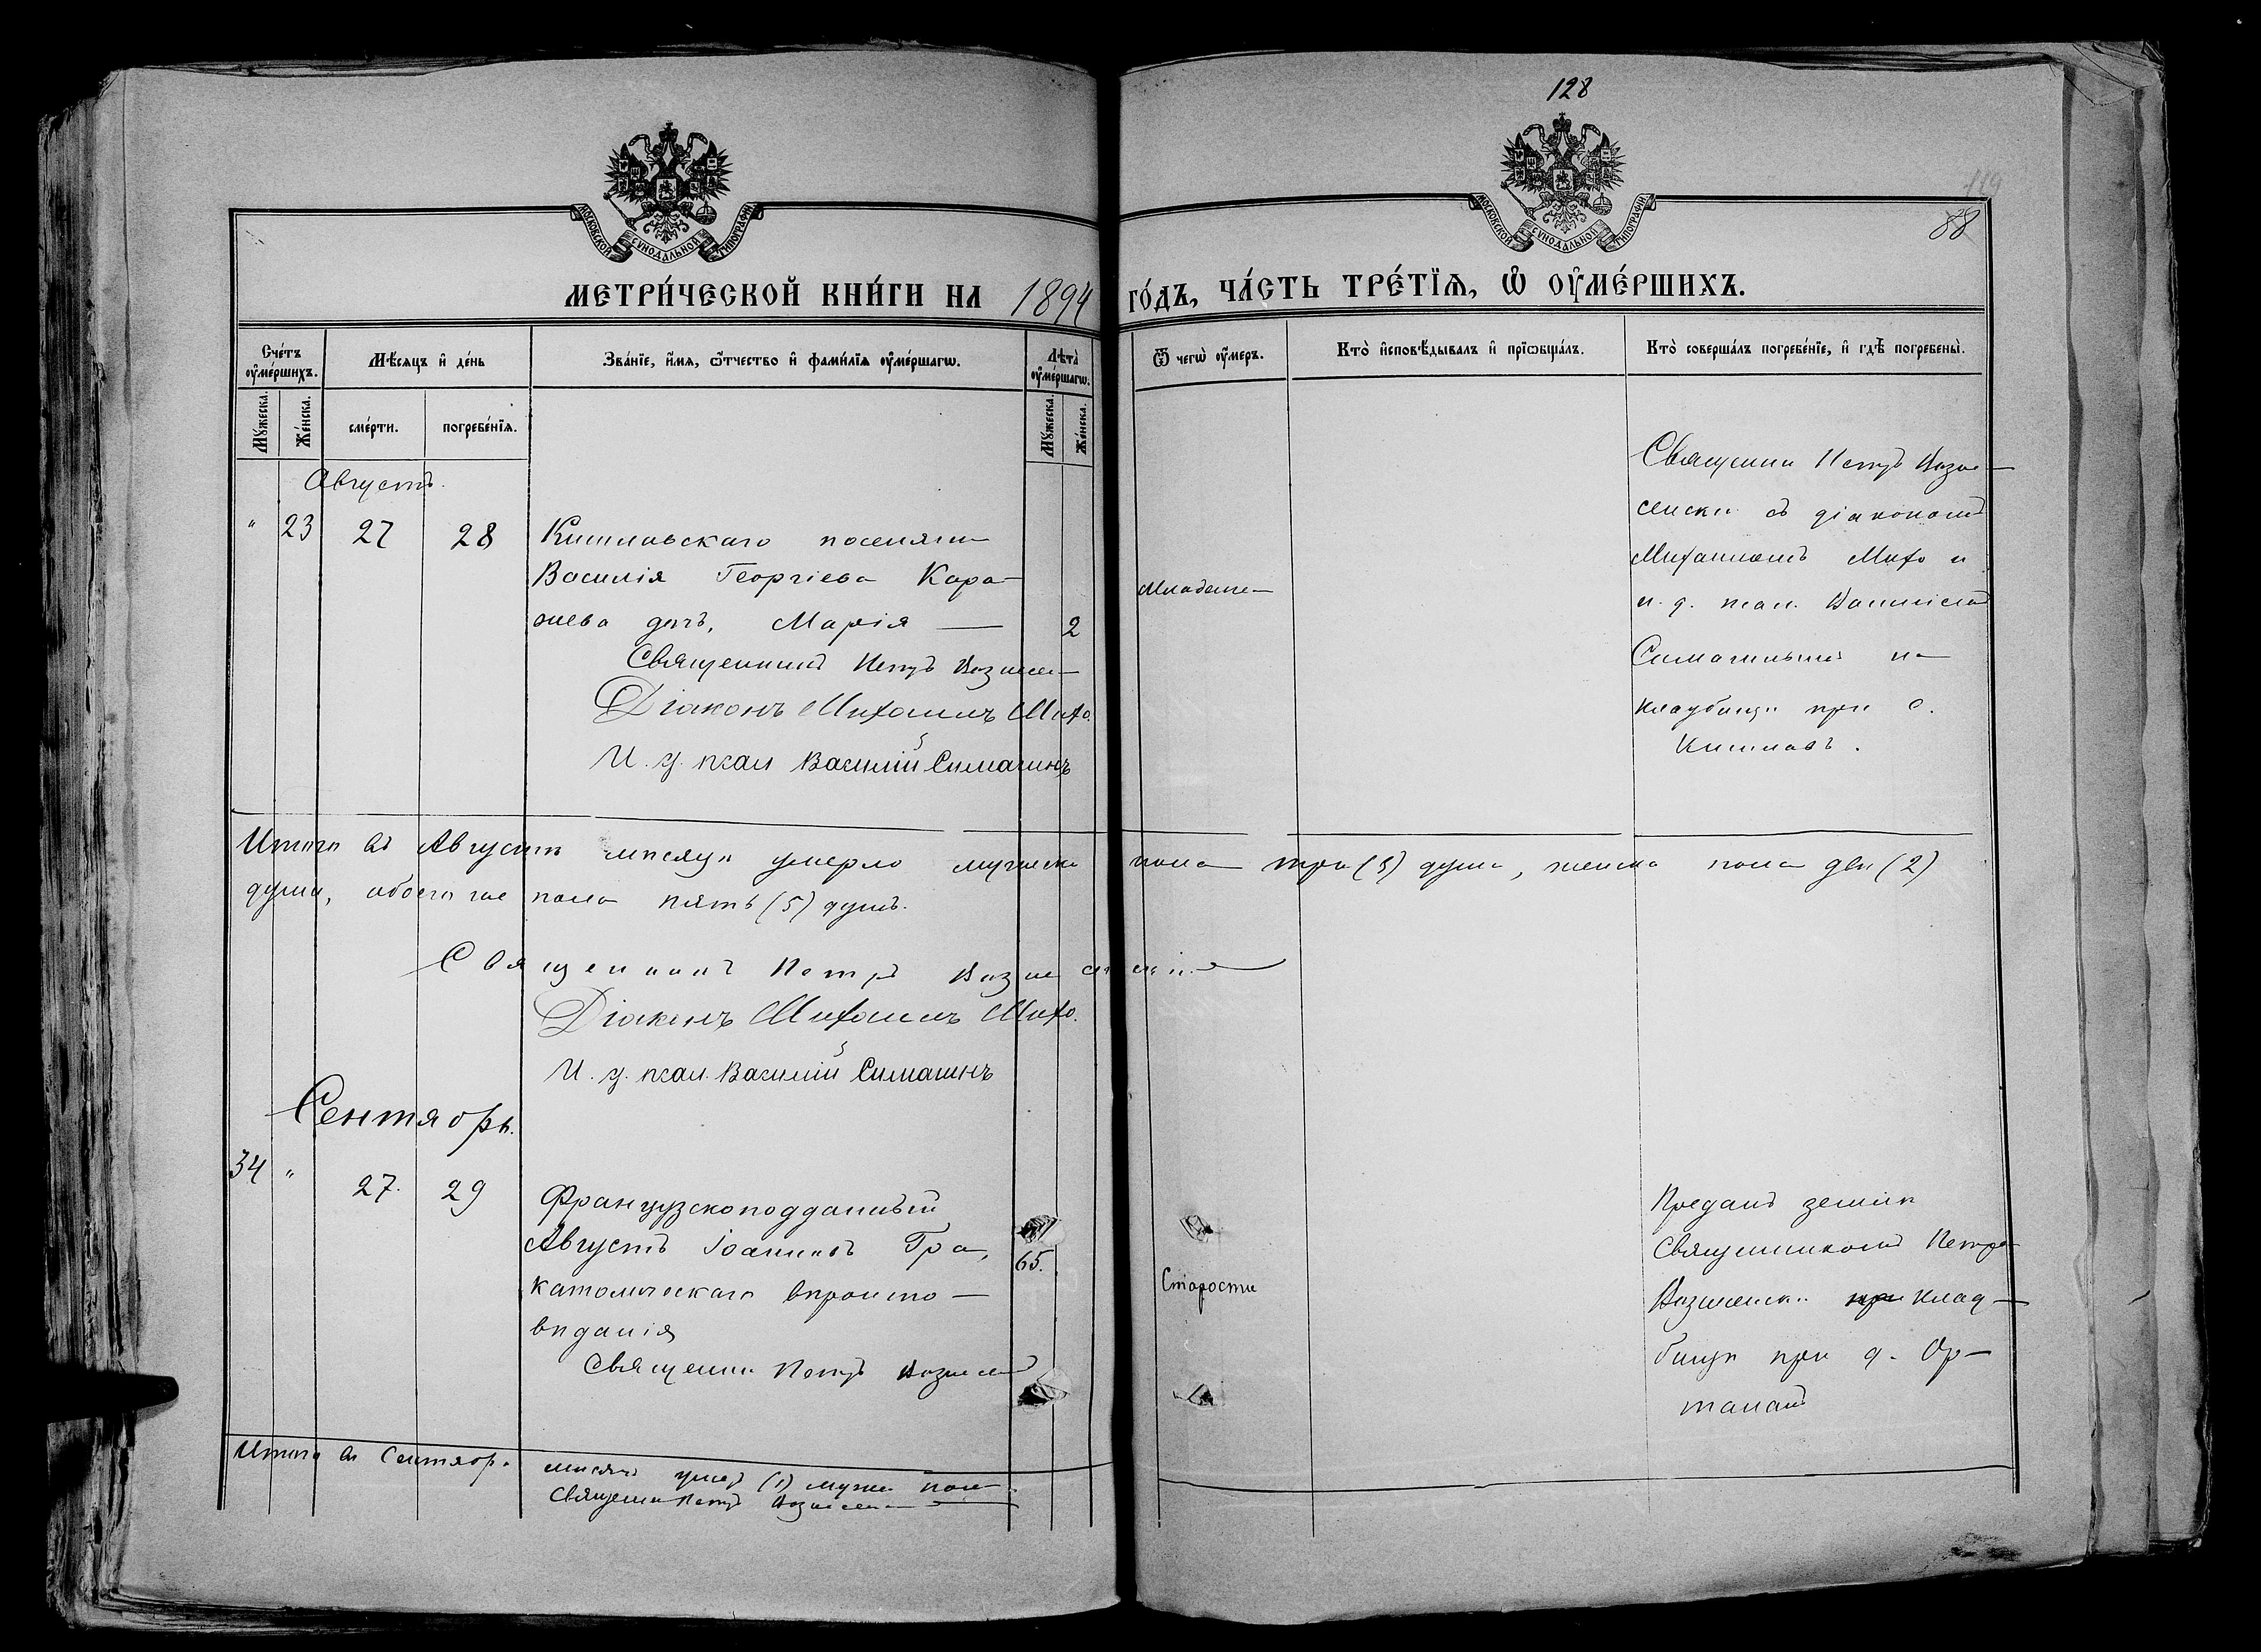 128
119
88
МОСКОВСКОЙ СѴНОДАЛЬНОЙ ТИПОГРАФІИ
МОСКОВСКОЙ СѴНОДАЛЬНОЙ ТИПОГРАФІИ
МЕТРИ́ЧЕСКОЙ КНИ́ГИ НА 1894 ГО́ДЪ, ЧА́СТЬ ТРЕ́ТЇѦ, Ѡ҆ ОУ҆МЕ́РШИХЪ.
Сче́тъ оу҆ме́ршихъ.
Мꙋ́жеска.
Же́нска.
Мѣ́сѧцъ и҆ де́нь
сме́рти.
погребе́нїѧ.
Зва́нїе, и҆́мѧ, ѻ҆́тчество и҆ фами́лїѧ оу҆ме́ршагѡ.
Лѣта̀ оу҆ме́ршагѡ.
Мꙋ́жеска.
Же́нска.
Ѿ чегѡ̀ оу҆́меръ.
Кто̀ и҆сповѣ́дывалъ и҆ прїѡбща́лъ.
Кто̀ соверша́лъ погребе́нїе, и҆ гдѣ̀ погребены̀.
Августъ.
" 23 27 28
Кишлавскаго поселяни
Василія Георгіева Кара-
жева дочь, Марія — 2
Священникъ Петръ Вознесен
Діаконъ Михаилъ Михо.
И. д. псал Василій Симагинъ
Младенч
Священник Петръ Возне-
сенски съ діакономъ
Михаиломъ Михо и
и. д. псал. Василіемъ
Симагинымъ на
кладбищѣ при с.
Кишлавъ.
Итого въ Августѣ мѣсяцѣ умерло мужеска пола три (3) души, женска пола двѣ (2)
души, обоего же пола пять (5) душъ.
Священникъ Петръ Вознесенскій
Діаконъ Михаилъ Михо.
И. д. псал. Василій Симагинъ
Сентябрь.
34 " 27. 29
Французскоподданный
Августъ Іоанновъ Гра,
65.
католическаго вѣроиспо-
вѣданія
Священник Петръ Вознесен
Старости
Преданъ землѣ
Священникомъ Петро
Вознесенски при клад-
бищѣ при д. Ор-
таланъ
Итого въ Сентябр. мѣсяцѣ умер (1) мужс пола
Священник Петръ Вознесен